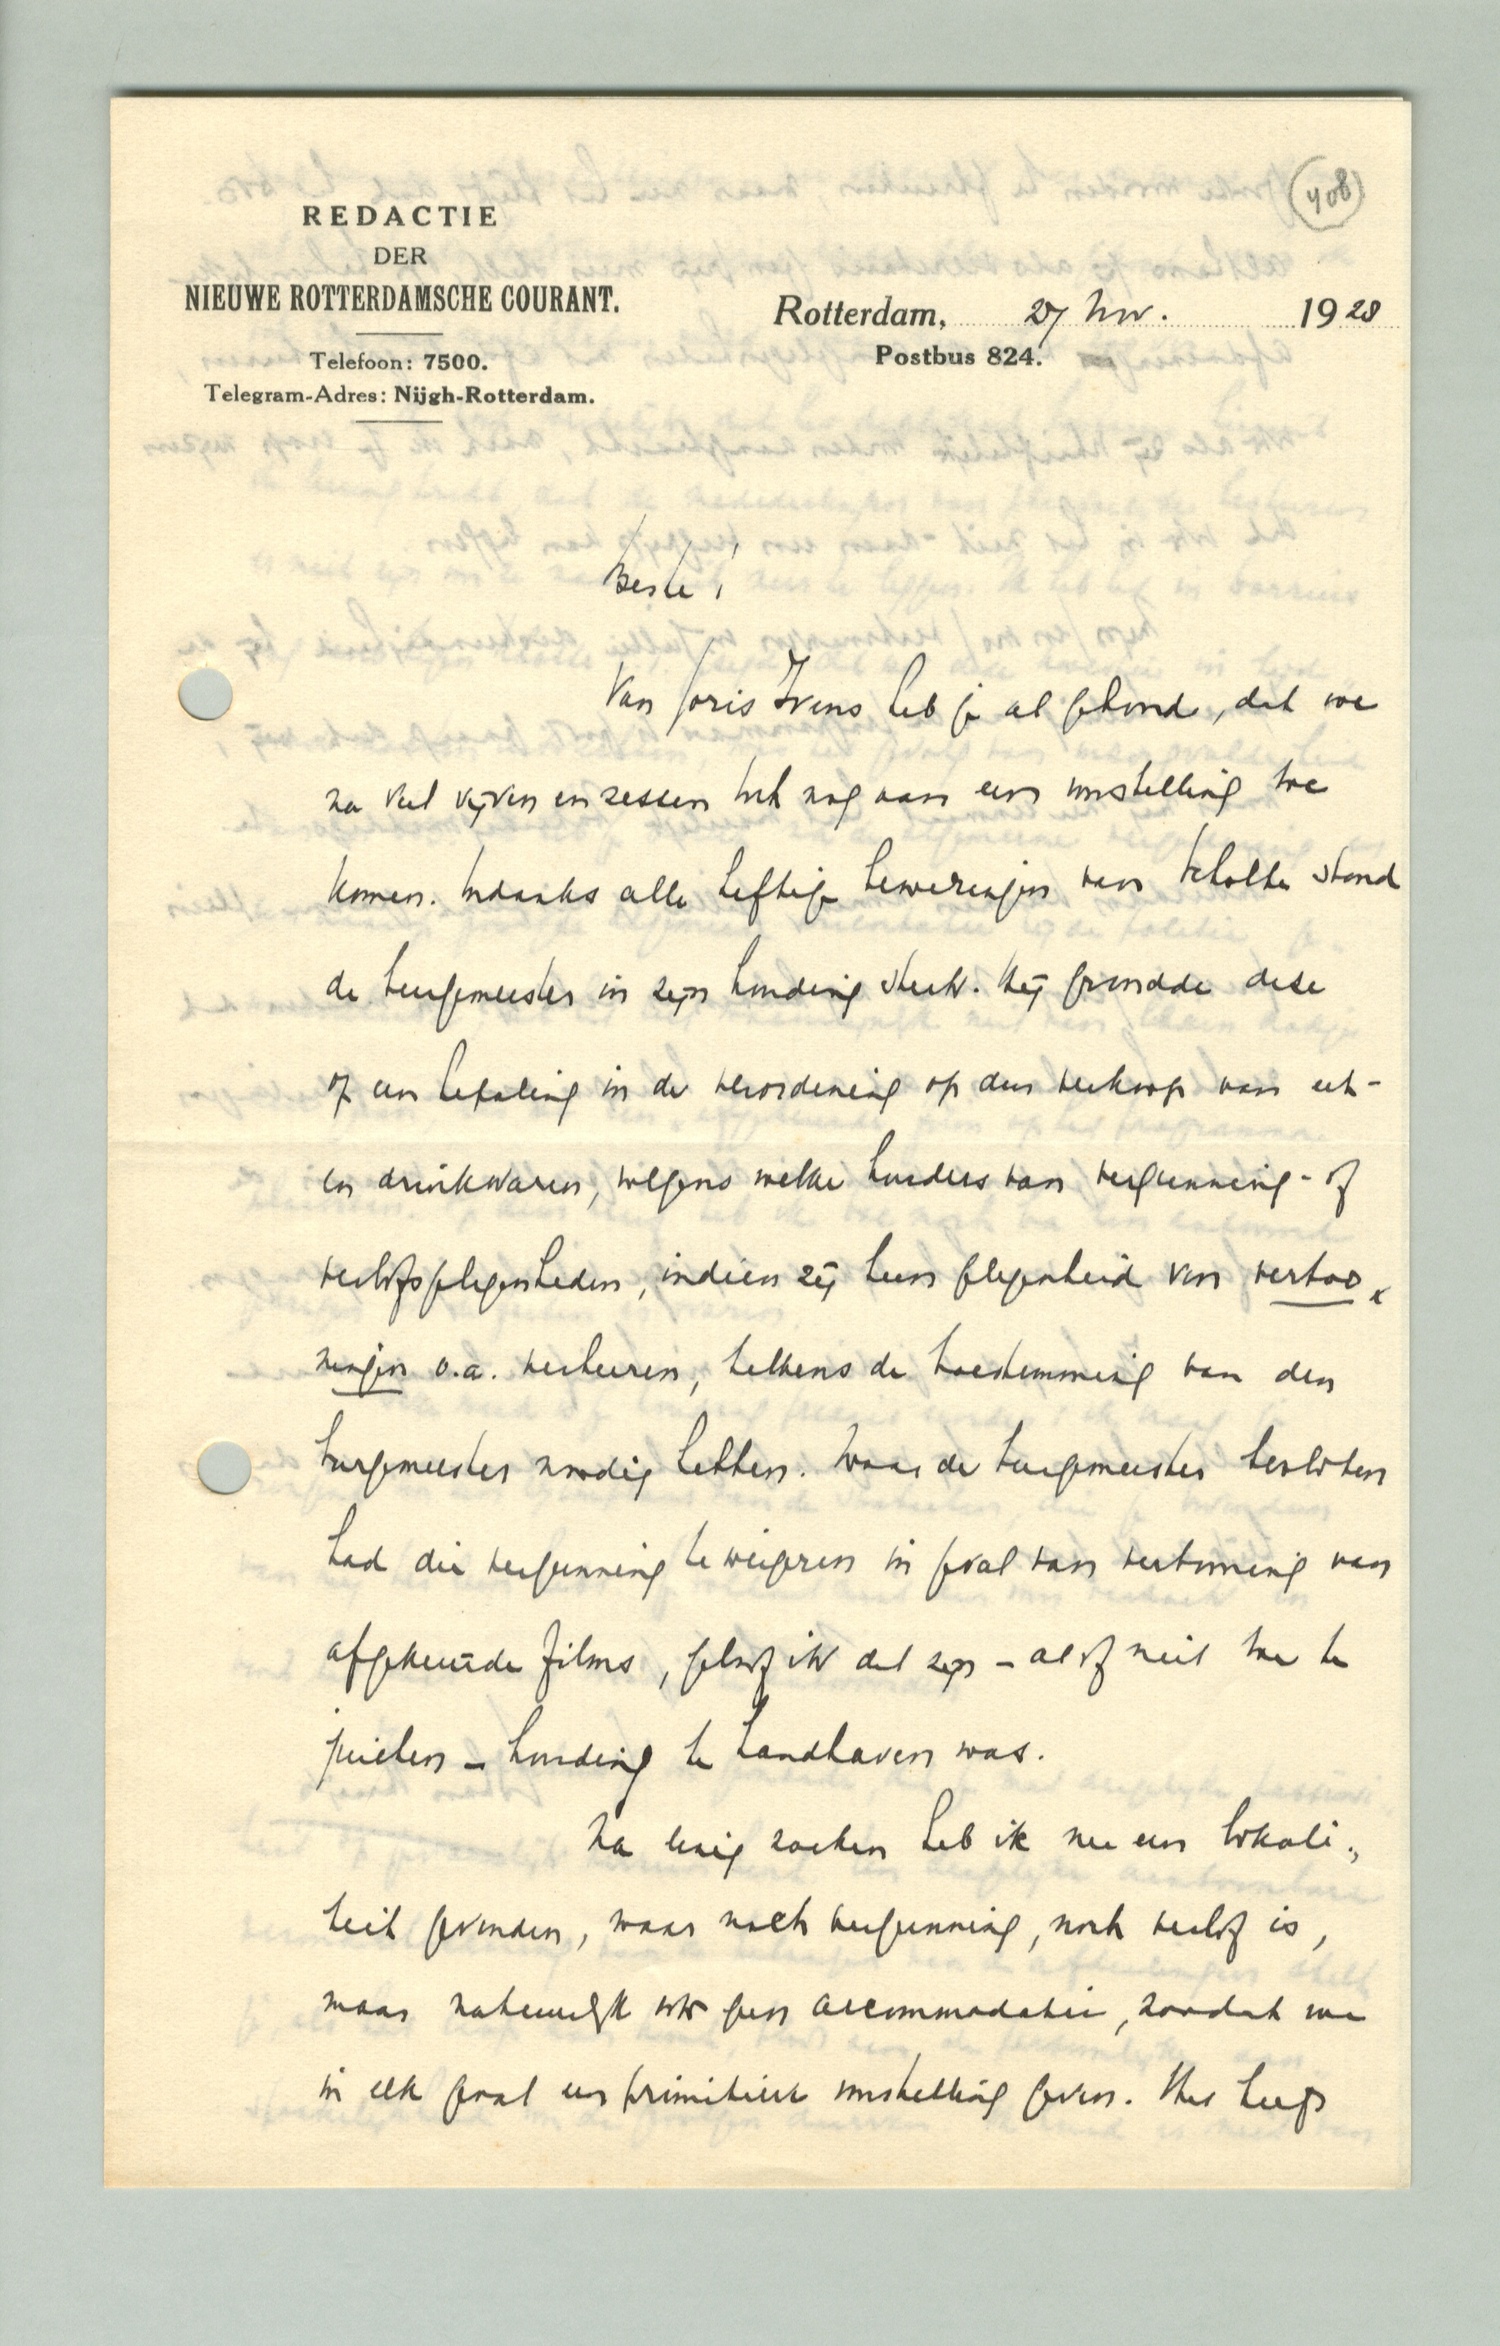 408
REDACTIE
DER
NIEUWE ROTTERDAMSCHE COURANT.
Telefoon: 7500.
Telegram-Adres: Nijgh-Rotterdam.
Rotterdam, 27 Nov. 1928
Postbus 824.
Beste!
Van Joris Ivens heb je al gehoord, dat we
na veel vijven en zessen toch nog aan een voorstelling toe
komen. Ondanks alle heftige beweringen van Scholte stond
de burgemeester in zijn houding sterk. Hij grondde deze
op een bepaling in de verordening op den verkoop van eet-
en drinkwaren, volgens welke houders van vergunning- of
verlofsgelegenheden, indien zij hun gelegenheid voor vertoo-
ningen o.a. verhuren, telkens de toestemming van den
burgemeester noodig hebben. Waar de burgemeester besloten
had die vergunning te weigeren in geval van vertooning van
afgekeurde films, geloof ik dat zijn – al of niet toe te
juichen – houding te handhaven was.
Na lang zoeken heb ik nu een lokali-
teit gevonden, waar noch vergunning, noch verlof is,
maar natuurlijk ook geen accommodatie, zoodat we
in elk geval een primitieve voorstelling geven. Het heeft